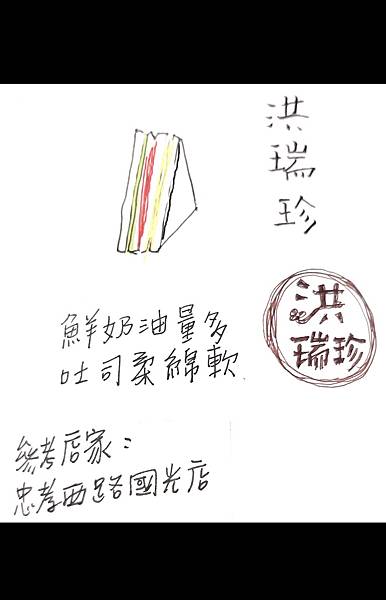 洪瑞珍
洪
瑞珍
鮮奶油量多
吐司柔綿軟
參考店家：
忠孝西路國光店